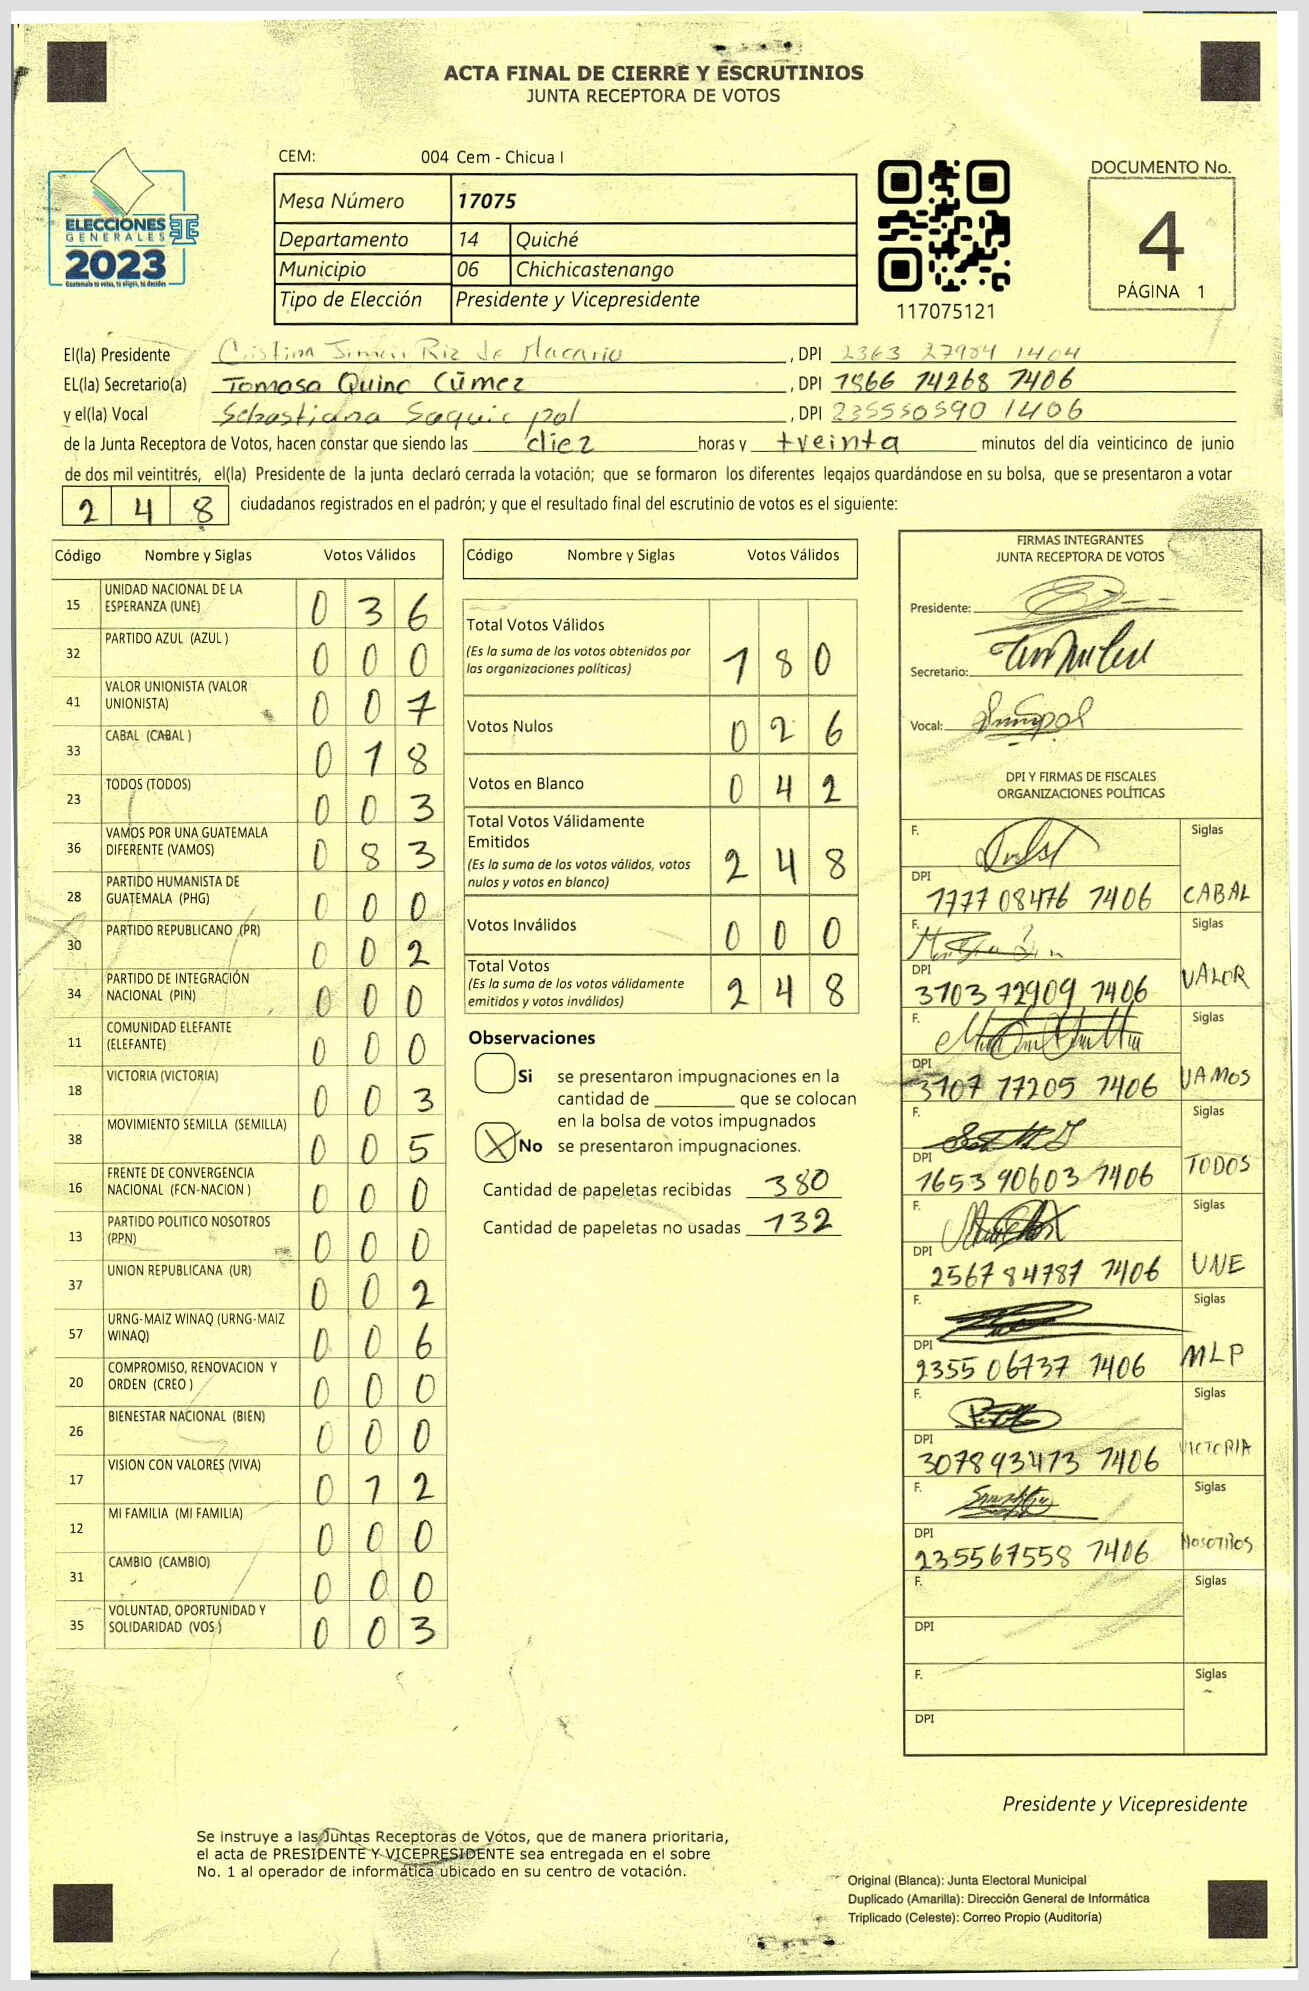 ACTA FINAL DE CIERRE Y ESCRUTINIOS
JUNTA RECEPTORA DE VOTOS
CEM: 004 Cem - Chicua I
ELECCIONES
GENERALES
2023
Guatemala tú votas, tú eliges, tú decides
Mesa Número 17075
Departamento 14 Quiché
Municipio 06 Chichicastenango
Tipo de Elección Presidente y Vicepresidente
117075121
DOCUMENTO No.
4
PÁGINA 1
El(la) Presidente Cristina Riz de Macario , DPI 2363 27984 1404
EL(la) Secretario(a) Tomasa Quino Cúmez , DPI 1866 74268 1406
y el(la) Vocal Sebastiana Saquic pol , DPI 235550590 1406
de la Junta Receptora de Votos, hacen constar que siendo las diez horas y treinta minutos del día veinticinco de junio
de dos mil veintitrés, el(la) Presidente de la junta declaró cerrada la votación; que se formaron los diferentes legajos guardándose en su bolsa, que se presentaron a votar
2 4 8 ciudadanos registrados en el padrón; y que el resultado final del escrutinio de votos es el siguiente:
Código Nombre y Siglas Votos Válidos
15 UNIDAD NACIONAL DE LA ESPERANZA (UNE) 0 3 6
32 PARTIDO AZUL (AZUL ) 0 0 0
41 VALOR UNIONISTA (VALOR UNIONISTA) 0 0 7
33 CABAL (CABAL ) 0 1 8
23 TODOS (TODOS) 0 0 3
36 VAMOS POR UNA GUATEMALA DIFERENTE (VAMOS) 0 8 3
28 PARTIDO HUMANISTA DE GUATEMALA (PHG) 0 0 0
30 PARTIDO REPUBLICANO (PR) 0 0 2
34 PARTIDO DE INTEGRACIÓN NACIONAL (PIN) 0 0 0
11 COMUNIDAD ELEFANTE (ELEFANTE) 0 0 0
18 VICTORIA (VICTORIA) 0 0 3
38 MOVIMIENTO SEMILLA (SEMILLA) 0 0 5
16 FRENTE DE CONVERGENCIA NACIONAL (FCN-NACION ) 0 0 0
13 PARTIDO POLITICO NOSOTROS (PPN) 0 0 0
37 UNION REPUBLICANA (UR) 0 0 2
57 URNG-MAIZ WINAQ (URNG-MAIZ WINAQ) 0 0 6
20 COMPROMISO, RENOVACION Y ORDEN (CREO ) 0 0 0
26 BIENESTAR NACIONAL (BIEN) 0 0 0
17 VISION CON VALORES (VIVA) 0 1 2
12 MI FAMILIA (MI FAMILIA) 0 0 0
31 CAMBIO (CAMBIO) 0 0 0
35 VOLUNTAD, OPORTUNIDAD Y SOLIDARIDAD (VOS ) 0 0 3
Código Nombre y Siglas Votos Válidos
Total Votos Válidos 1 8 0
(Es la suma de los votos obtenidos por
las organizaciones políticas)
Votos Nulos 0 2 6
Votos en Blanco 0 4 2
Total Votos Válidamente
Emitidos 2 4 8
(Es la suma de los votos válidos, votos
nulos y votos en blanco)
Votos Inválidos 0 0 0
Total Votos 2 4 8
(Es la suma de los votos válidamente
emitidos y votos inválidos)
Observaciones
Si se presentaron impugnaciones en la
cantidad de ________ que se colocan
en la bolsa de votos impugnados
X No se presentaron impugnaciones.
Cantidad de papeletas recibidas 380
Cantidad de papeletas no usadas 132
FIRMAS INTEGRANTES
JUNTA RECEPTORA DE VOTOS
Presidente:
Secretario:
Vocal:
DPI Y FIRMAS DE FISCALES
ORGANIZACIONES POLÍTICAS
F. Siglas
DPI 1777 08476 1406 CABAL
F. Siglas
DPI 3103 72909 1406 VALOR
F. Siglas
DPI 3107 17205 1406 VAMOS
F. Siglas
DPI 1653 90603 1406 TODOS
F. Siglas
DPI 2567 84787 1406 UNE
F. Siglas
DPI 2355 06737 1406 MLP
F. Siglas
DPI 307893473 1406 VICTORIA
F. Siglas
DPI 235567558 1406 NOSOTROS
F. Siglas
DPI
F. Siglas
DPI
Presidente y Vicepresidente
Se instruye a las Juntas Receptoras de Votos, que de manera prioritaria,
el acta de PRESIDENTE Y VICEPRESIDENTE sea entregada en el sobre
No. 1 al operador de informática ubicado en su centro de votación.
Original (Blanca): Junta Electoral Municipal
Duplicado (Amarilla): Dirección General de Informática
Triplicado (Celeste): Correo Propio (Auditoría)